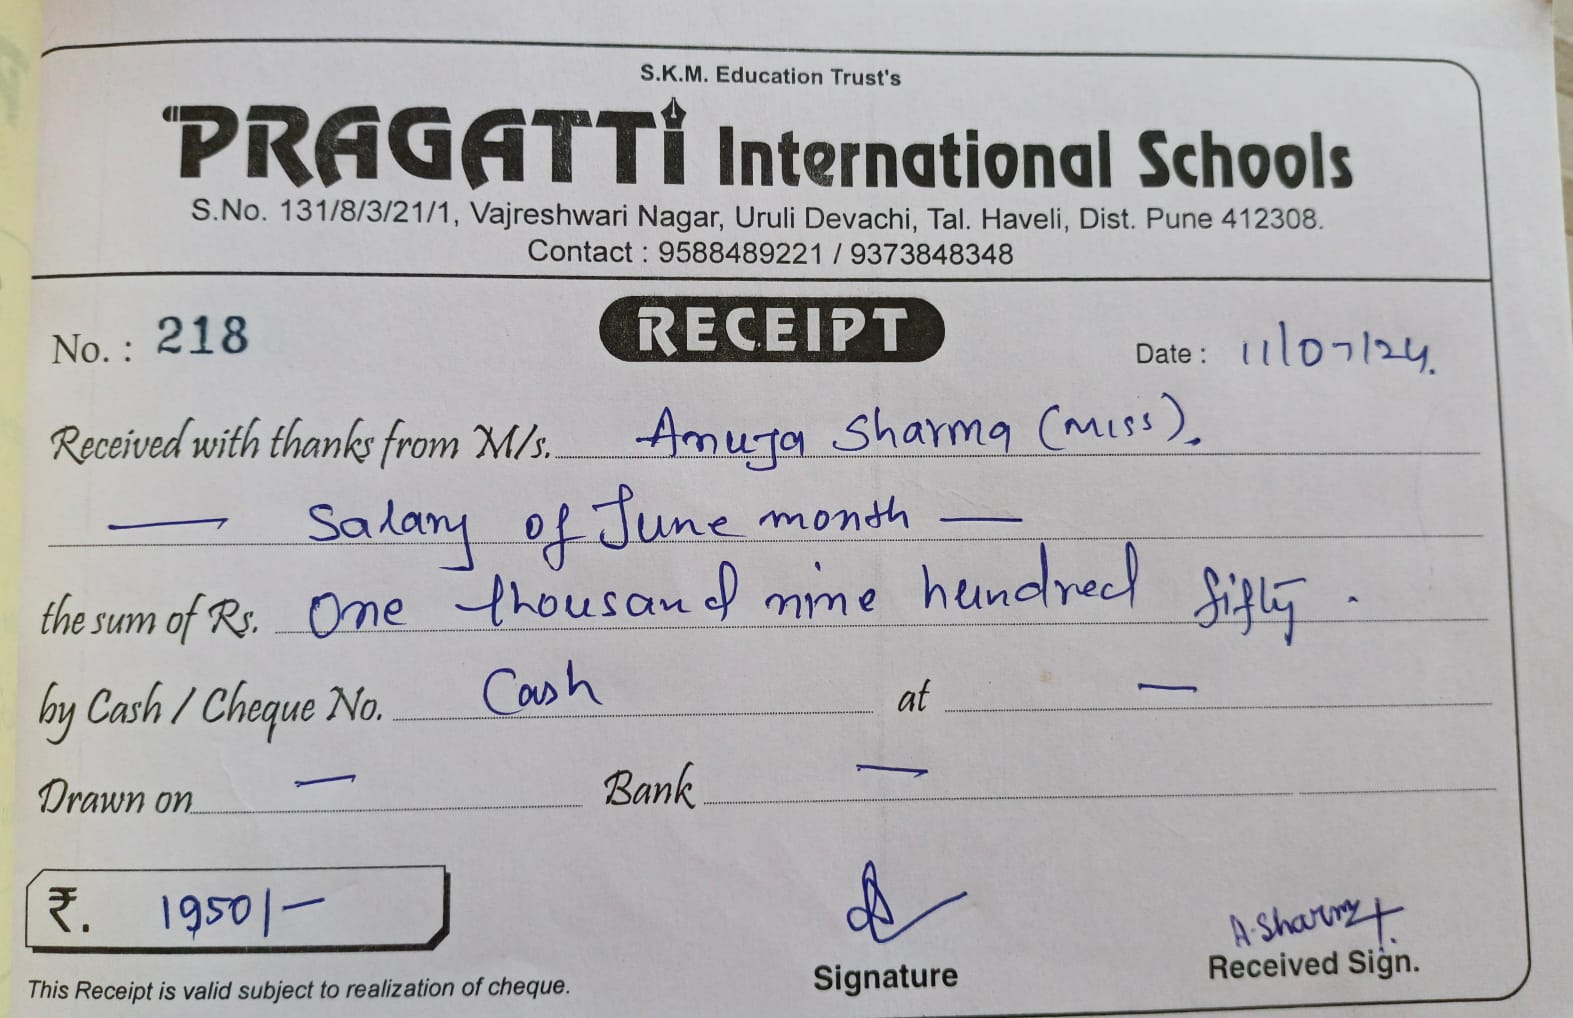 S.K.M. Education Trust's
"PRAGATTi International Schools
S.No. 131/8/3/21/1, Vajreshwari Nagar, Uruli Devachi, Tal. Haveli, Dist. Pune 412308.
Contact : 9588489221 / 9373848348
RECEIPT
No. : 218 Date : 11/07/24.
Received with thanks from M/s. Anuja Sharma (Miss).
— Salary of June month —
the sum of Rs. One thousand nine hundred fifty.
by Cash / Cheque No. Cash at —
Drawn on — Bank —
₹. 1950/-
A.Sharma
Signature Received Sign.
This Receipt is valid subject to realization of cheque.